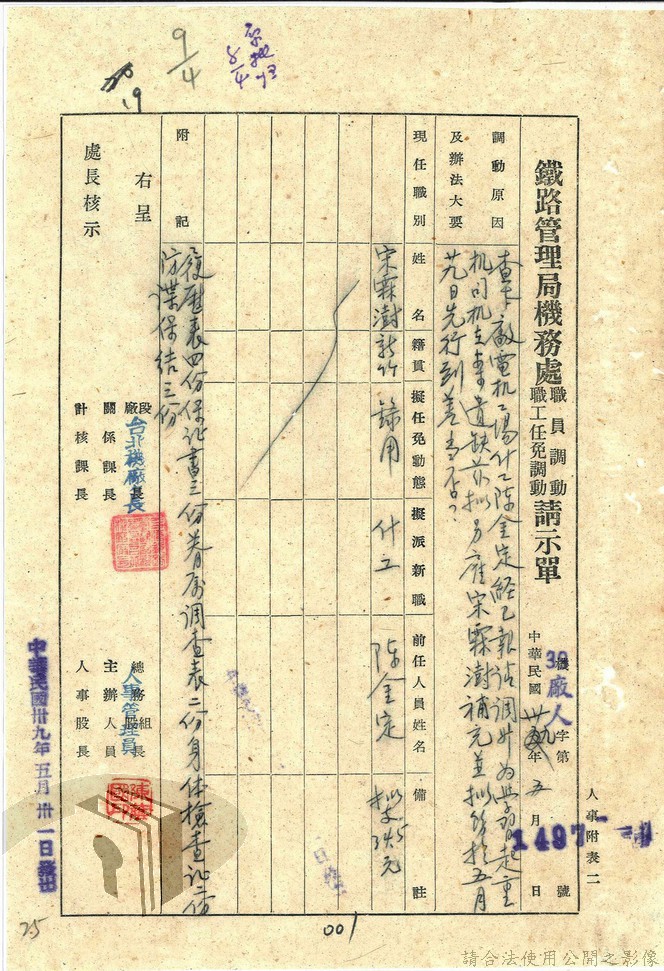 人事附表二
鐵路管理局機務處職員調動請示單
職工任免調動
中華民國卅九年五月 日
39機廠人字第1497號
調動原因及辦法大要
查本廠電机工場什工陳金定經已報請調升為學習起重
机司机立車遺缺茲拟另雇宋霖澍補充並拟飭於五月
廿九日先行到差当否?
現任職別
姓名
籍貫
擬任免動態
擬派新職
前任人員姓名
備註
宋霖澍
新竹
錄用
什工
陳金定
附記
履歷表四份保証書三份眷屬調查表二份身体檢查証二份
防諜保結三份
右呈
處長核示
段廠長
台北機廠長
關係課長
計核課長
總務組股長
人事管理員
主辦人員
人事股長
中華民國卅九年五月卅一日發出
9/4
8/4
19
25
001
請合法使用公開之影像